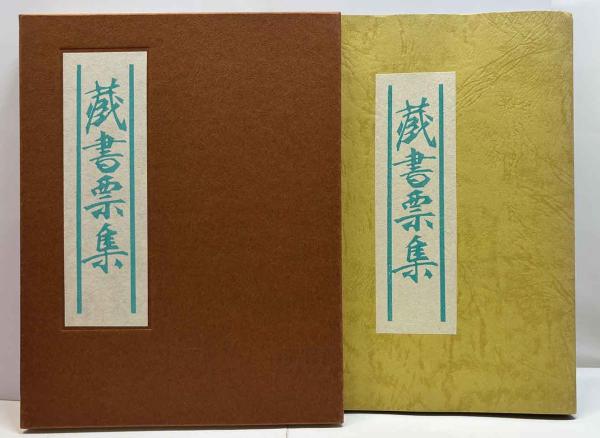 蔵書票集
蔵書票集